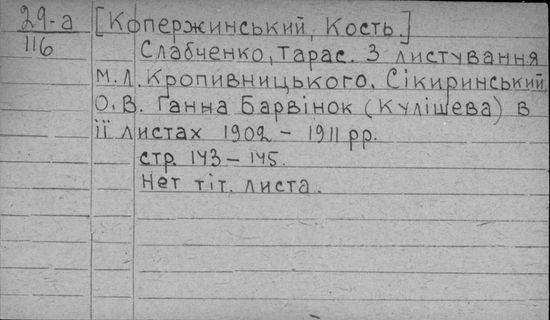 29-а [Копержинський, Кость.]
116
Слабченко, Тарас. З листування
М.Л. Кропивницького. Сікиринський
О.В. Ганна Барвінок (Кулішева) в
її листах 1902 - 1911 рр.
стр. 143 - 145.
Нет тіт. листа.